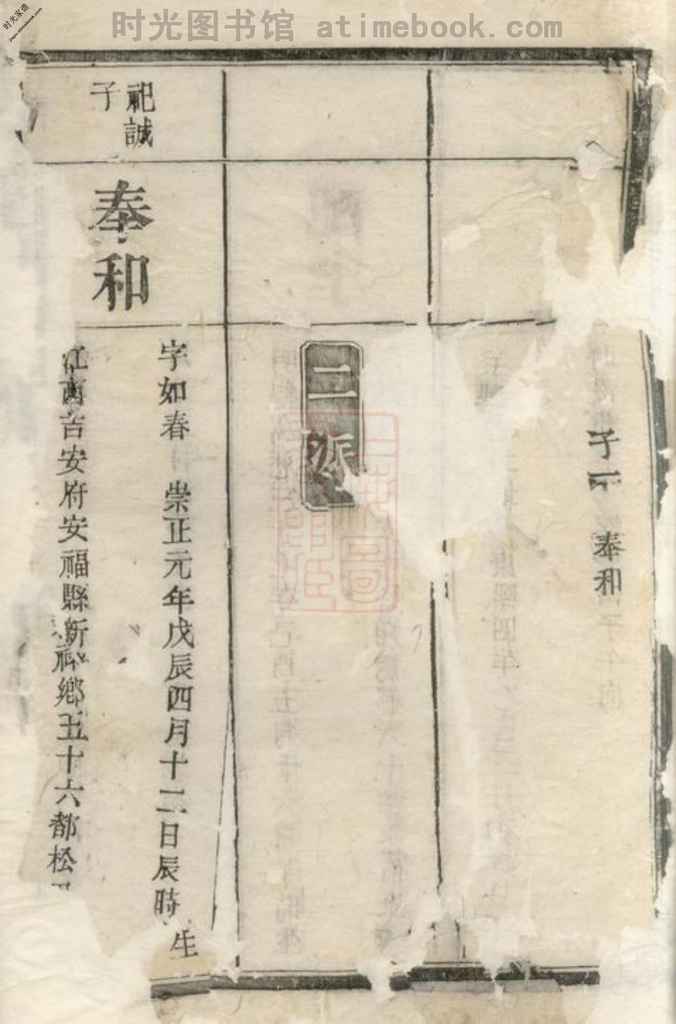 时光图书馆 atimebook.com
时光家谱
子一
奉和
二派
祀誠
子
奉和
字如春 崇正元年戊辰四月十二日辰時生
江西吉安府安福縣新 鄉五十六都松